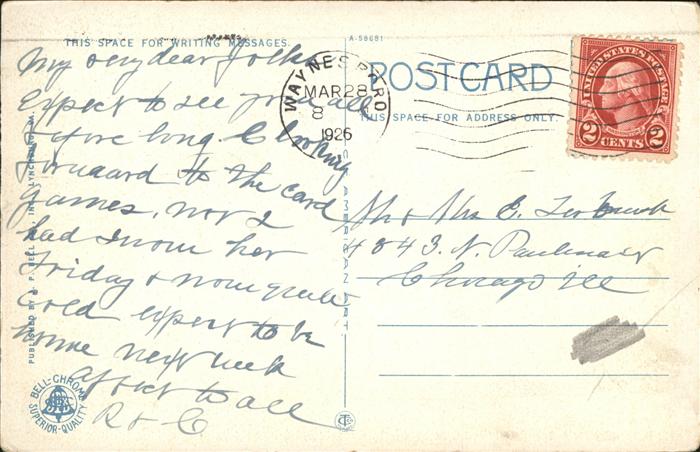 THIS SPACE FOR WRITING MESSAGES.
A-58681
POST CARD
THIS SPACE FOR ADDRESS ONLY.
WAYNESBORO
MAR 28
8
1926
UNITED STATES POSTAGE
2 CENTS 2
My very dear folks
Expect to see you all
before long. & looking
forward to the card
games,
had snow her
Friday & now quite
cold expect to be
home next week
affect to all
R & C
Mr & Mrs E.
4843. N. Paulina St
Chicago Ill
PUBLISHED BY J. P. BELL CO. INC. LYNCHBURG, VA.
BELL-CHROME
SUPERIOR-QUALITY